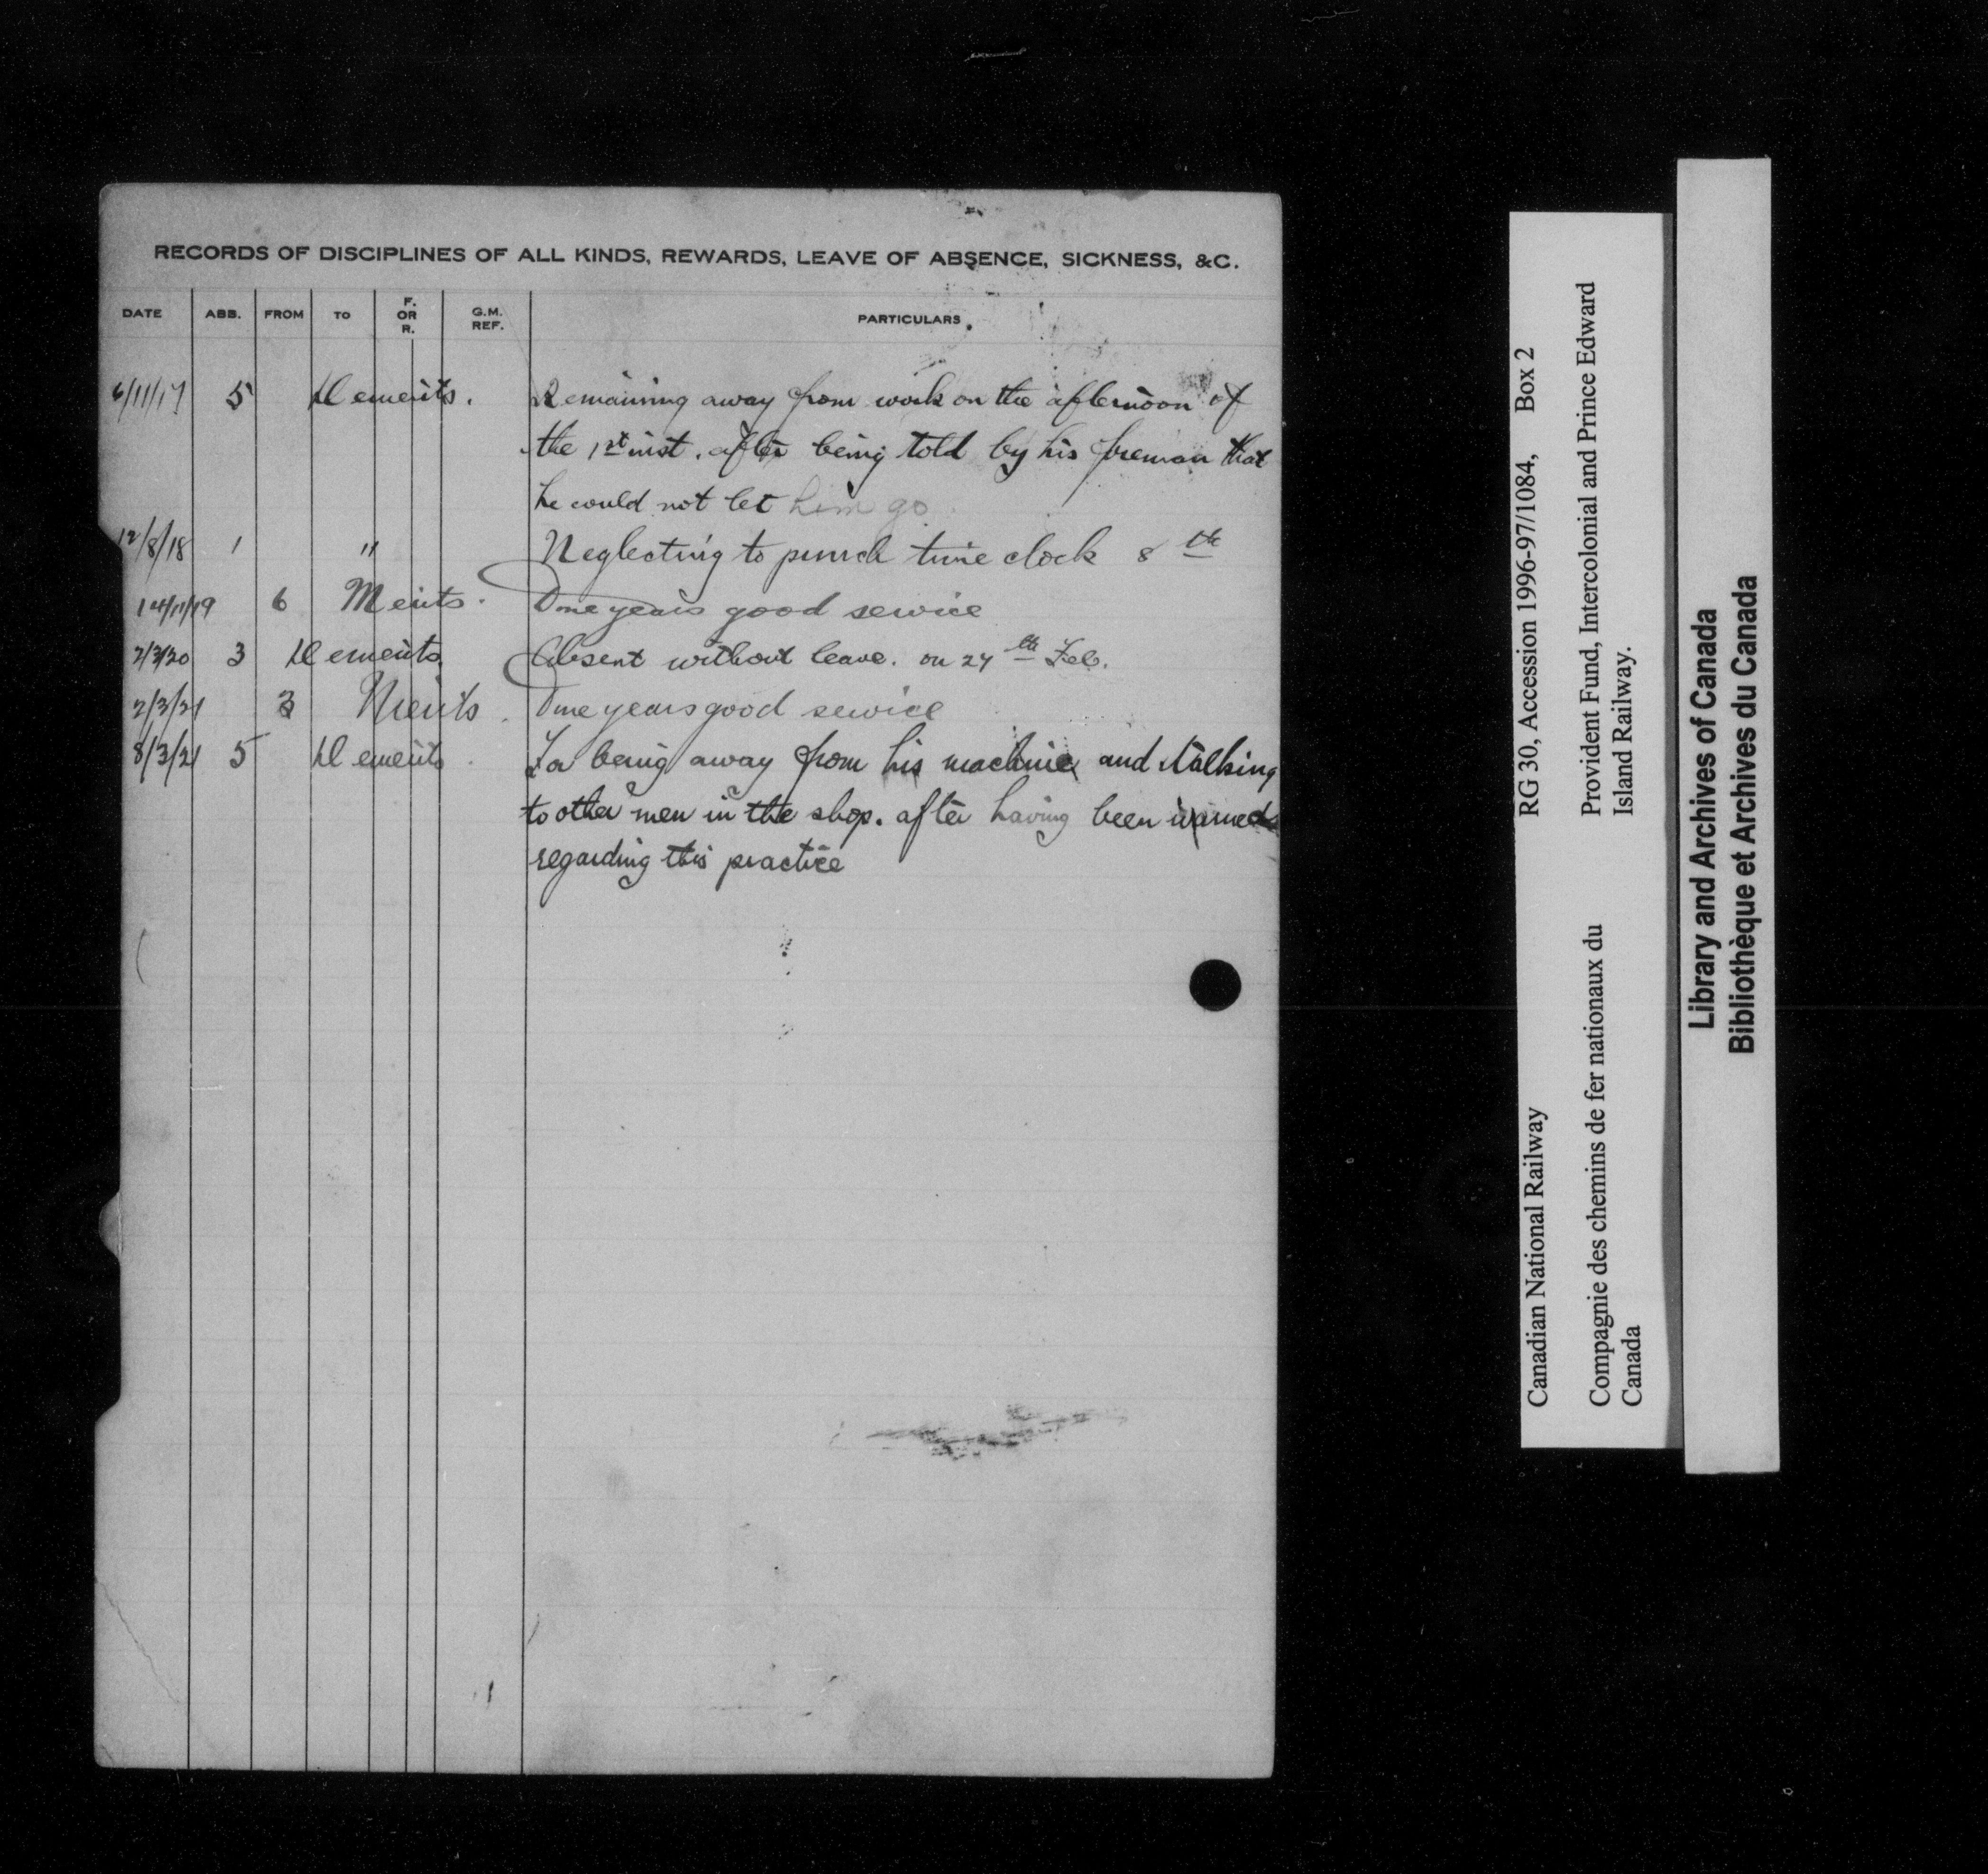 RECORDS OF DISCIPLINES OF ALL KINDS, REWARDS, LEAVE OF ABSENCE, SICKNESS, &C.
DATE ABB. FROM TO F. OR R. G.M. REF. PARTICULARS
6/11/17 5 Demerits. Remaining away from work on the afternoon of
the 1st inst. after being told by his foreman that
he could not let him go
12/8/18 1 " Neglecting to punch time clock 8th
14/11/19 6 Merits. One years good service
2/3/20 3 Demerits Absent without leave. on 27th Feb.
2/3/21 3 Merits. One years good service
8/3/21 5 Demerits. For being away from his machine and talking
to other men in the shop. after having been warned
regarding this practice
Canadian National Railway RG 30, Accession 1996-97/1084, Box 2
Compagnie des chemins de fer nationaux du Provident Fund, Intercolonial and Prince Edward
Canada Island Railway.
Library and Archives of Canada
Bibliothèque et Archives du Canada